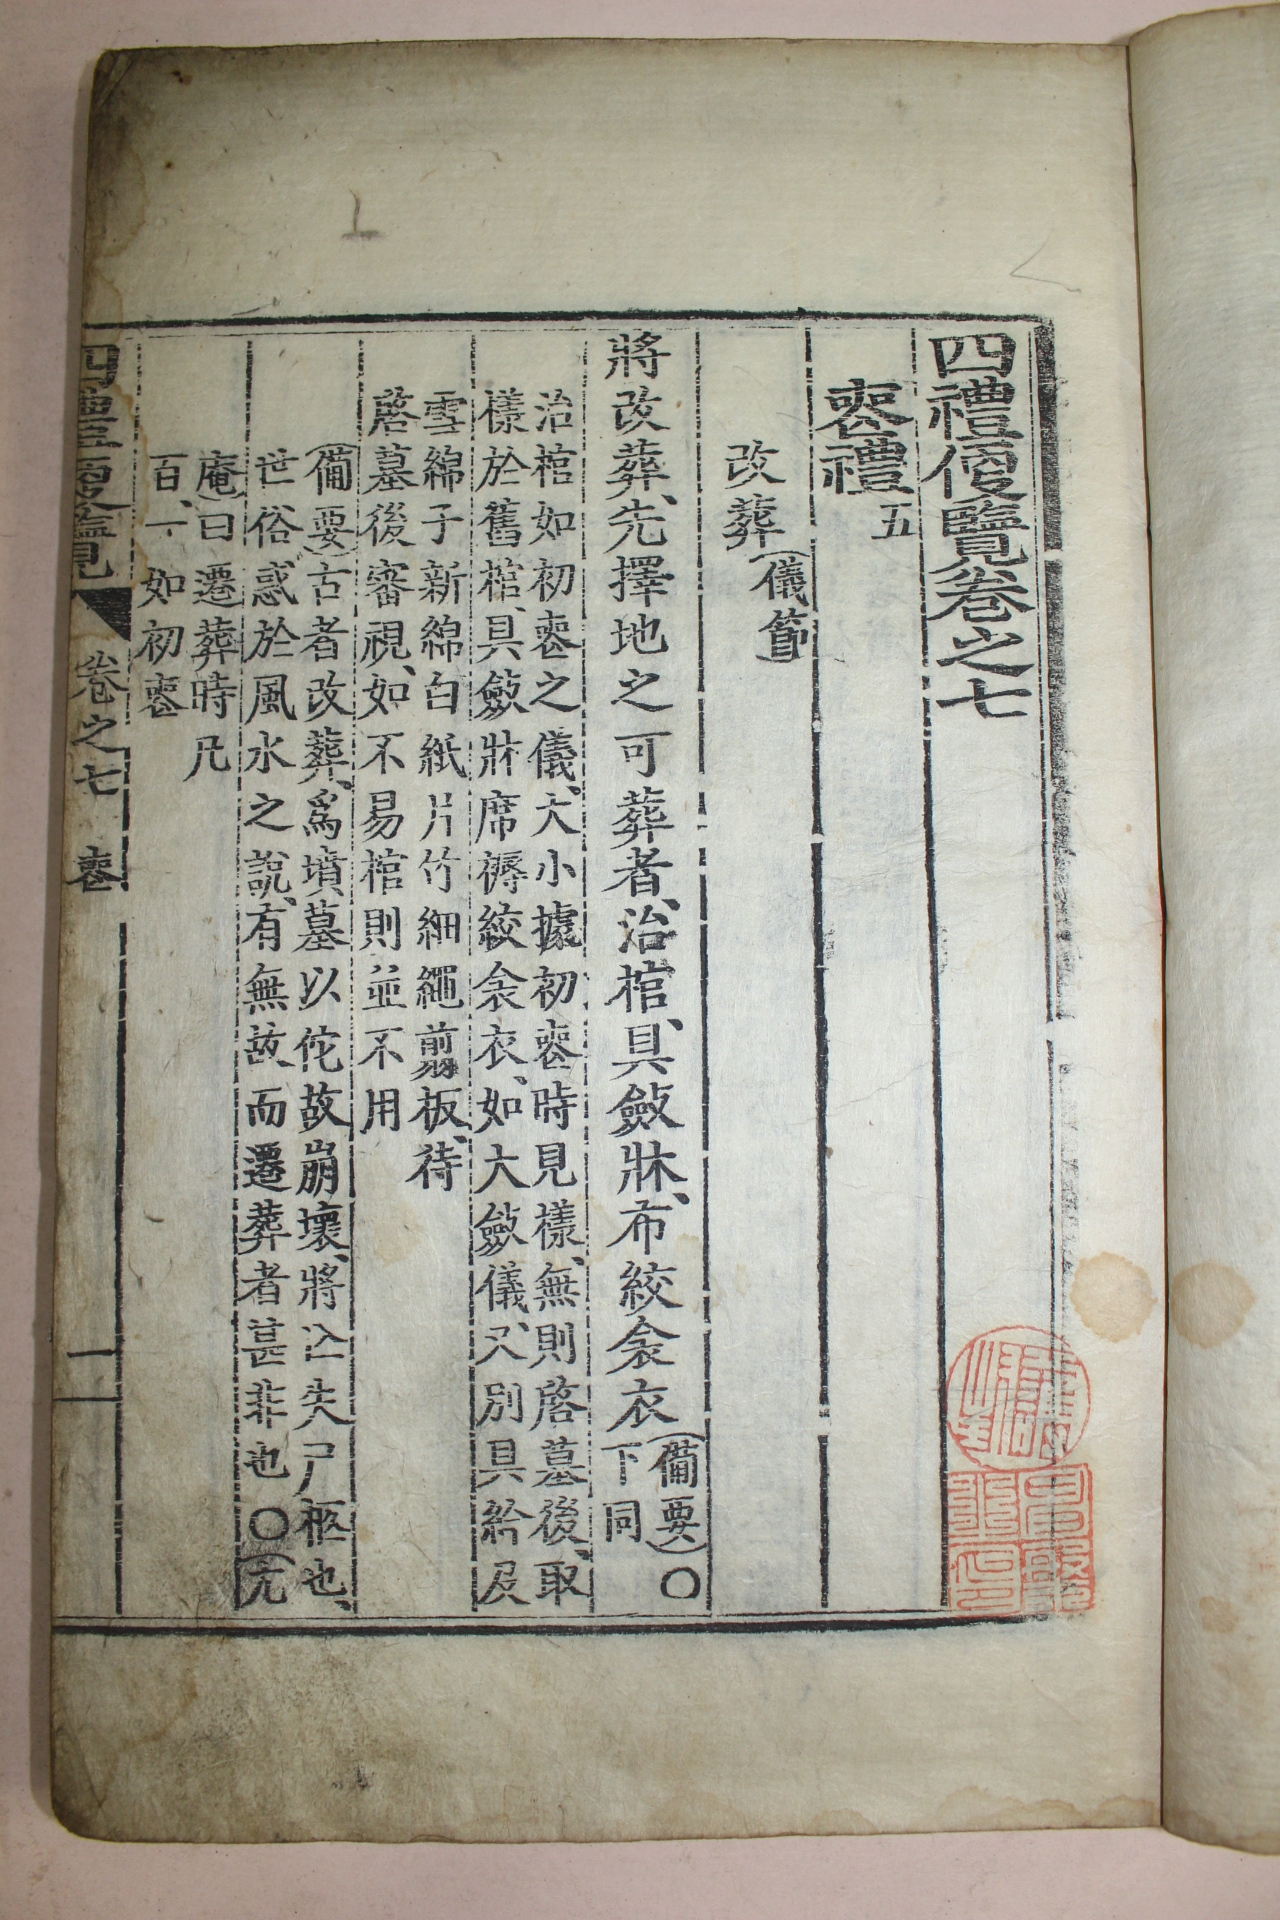 四禮便覽卷之七
喪禮五
改葬(儀節)
將改葬、先擇地之可葬者、治棺、具斂牀、布絞衾衣(備要)○下同
治棺如初喪之儀、大小據初喪時見樣、無則啓墓後、取
樣於舊棺、具斂牀席褥絞衾衣、如大斂儀、又別具給及
雪綿子新綿白紙片竹細繩翦板、待
啓墓後審視、如不易棺則並不用
(備要)古者改葬、爲墳墓以佗故崩壞、將亡失尸柩也、
世俗惑於風水之說、有無故而遷葬者甚非也○(尤
庵)曰遷葬時凡
百、一如初喪
四禮便覽 卷之七 喪 一